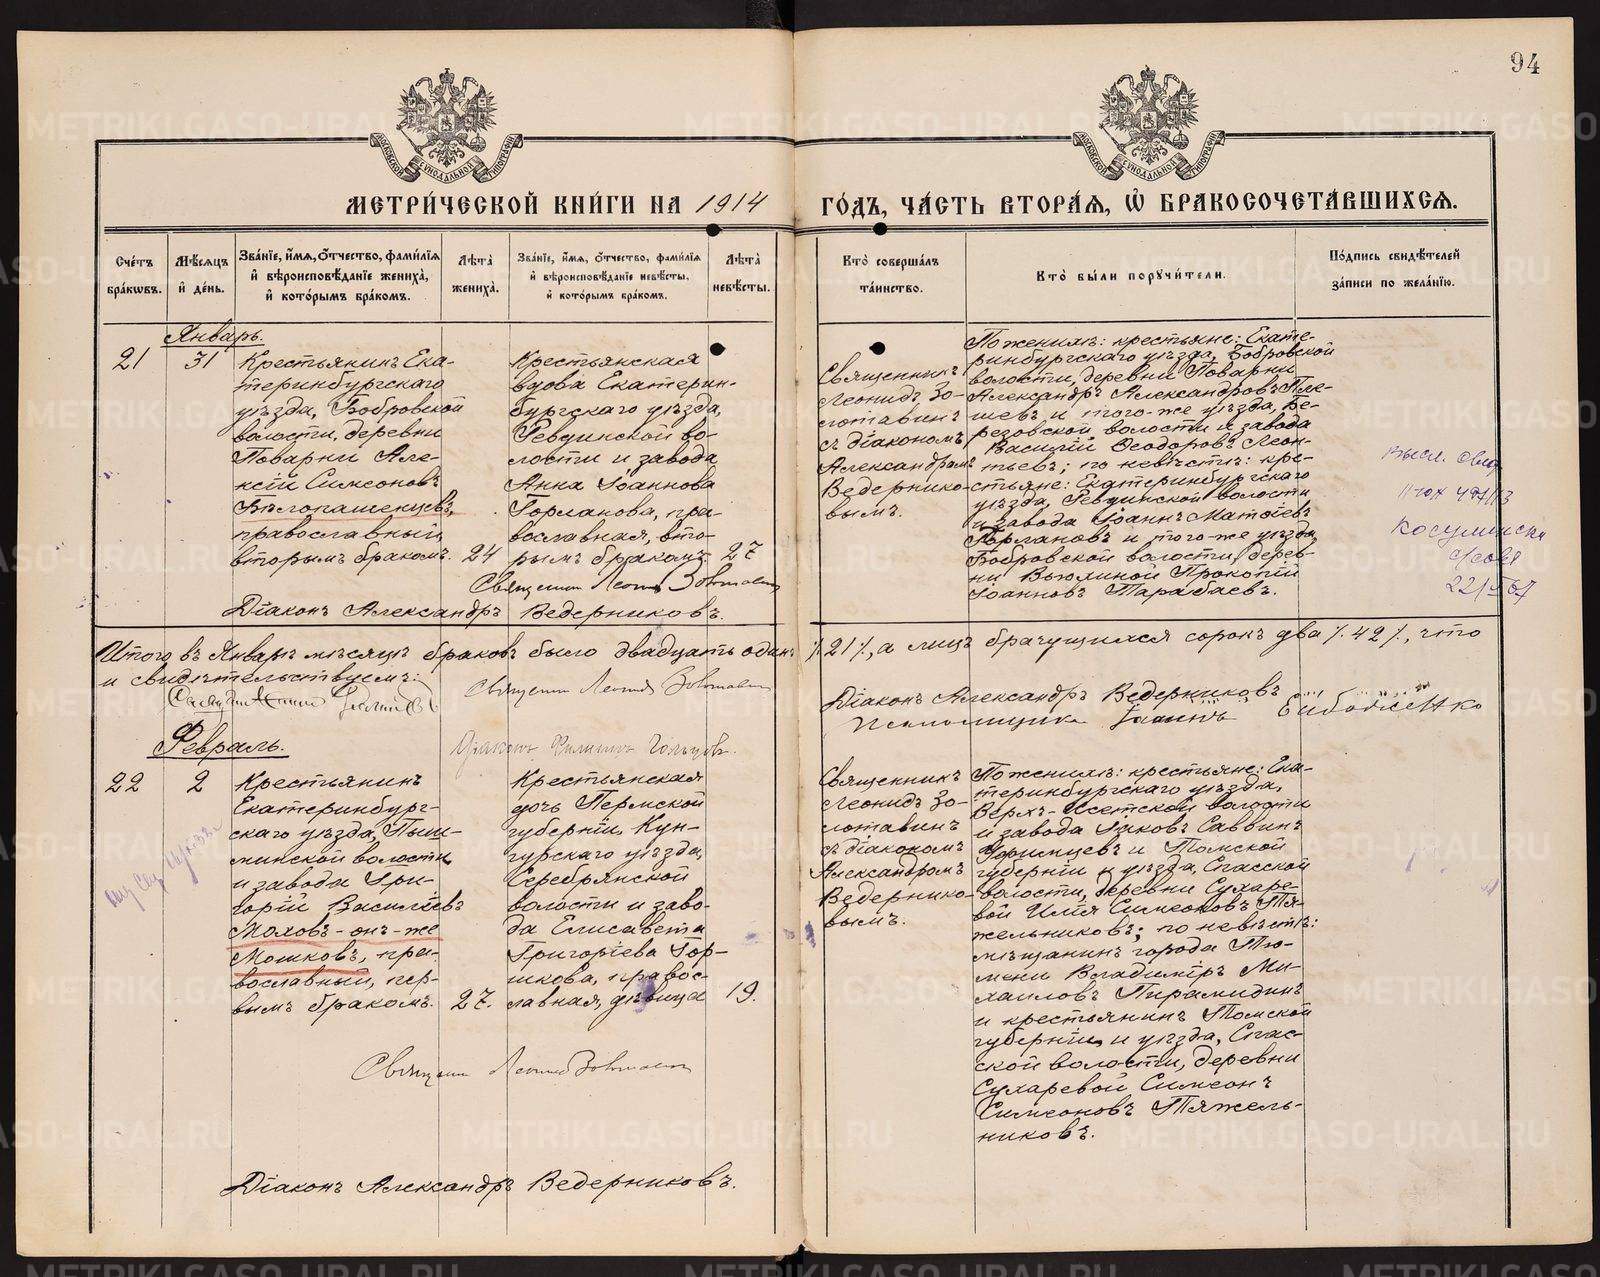 94
МЕТРИ́ЧЕСКОЙ КНИ́ГИ НА 1914 ГО́ДЪ, ЧА́СТЬ ВТОРА́Я, Ѡ҆ БРАКОСОЧЕТА́ВШИХСЯ.
Сче́тъ бра́кѡвъ.
Мѣ́сяцъ и҆ де́нь.
Зва́нїе, и҆́мя, ѻ҆́тчество, фами́лїя и҆ вѣроисповѣ́данїе жениха̀, и҆ кото́рымъ бра́комъ.
Лѣ́та̀ жениха̀.
Зва́нїе, и҆́мя, ѻ҆́тчество, фами́лїя и҆ вѣроисповѣ́данїе невѣ́сты, и҆ кото́рымъ бра́комъ.
Лѣ́та̀ невѣ́сты.
Кто̀ соверша́лъ та́инство.
Кто̀ бы́ли порꙋчи́тели.
По́дпись свидѣ́телей за́писи по жела́нїю.
Январь.
21
31
Крестьянинъ Ека-
теринбургскаго
уѣзда, Бобровской
волости, деревни
Поварни Але-
ксій Симеоновъ
Бѣлопашенцевъ,
православный,
вторымъ бракомъ.
24
Крестьянская
вдова Екатерин-
бургскаго уѣзда,
Ревдинской во-
лости и завода
Анна Іоаннова
Горланова, пра-
вославная, вто-
рымъ бракомъ.
27
Священникъ
Леонидъ Зо-
лотавинъ
съ діакономъ
Александромъ
Ведернико-
вымъ.
По женихѣ: крестьяне: Екате-
ринбургскаго уѣзда, Бобровской
волости, деревни Поварни
Александръ Александровъ Пле-
шевъ и того-же уѣзда, Бе-
резовской волости и завода
Василій Ѳеодоровъ Леон-
тьевъ; по невѣстѣ: кре-
стьяне: Екатеринбургскаго
уѣзда, Ревдинской волости
и завода Іоаннъ Матѳіевъ
Горлановъ и того-же уѣзда,
Бобровской волости, дерев-
ни Вьюхиной Прокопій
Іоанновъ Тарабаевъ.
Священникъ Леонидъ Золотавинъ
Діаконъ Александръ Ведерниковъ.
Итого въ Январѣ мѣсяцѣ браковъ было двадцать одинъ /.21/., а лицъ брачущихся сорокъ два /.42/., что
и свидѣтельствуемъ:
Священникъ Леонидъ Золотавинъ
Діаконъ Александръ Ведерниковъ
Февраль.
22
2
Крестьянинъ
Екатеринбург-
скаго уѣзда, Пыш-
минской волости
и завода Гри-
горій Василіевъ
Моховъ-онъ-же
Мошковъ, пра-
вославный, пер-
вымъ бракомъ.
27.
Крестьянская
дочь Пермской
губерніи, Кун-
гурскаго уѣзда,
Серебрянской
волости и заво-
да Елисавета
Григоріева Гор-
шкова, правос-
лавная, дѣвица
19.
Священникъ
Леонидъ Зо-
лотавинъ
съ діакономъ
Александромъ
Ведернико-
вымъ.
По женихѣ: крестьяне: Ека-
теринбургскаго уѣзда,
Верхъ-Исетской волости
и завода Іаковъ Саввинъ
Уфимцевъ и Томской
губерніи и уѣзда, Спасской
волости, деревни Сухаре-
вой Илія Симеоновъ Тя-
жельниковъ; по невѣстѣ:
мѣщанинъ города Тю-
мени Владиміръ Ми-
хаиловъ Пирамидинъ
и крестьянинъ Томской
губерніи, и уѣзда, Спас-
ской волости, деревни
Сухаревой Симеонъ
Симеоновъ Тяжель-
никовъ.
Священникъ Леонидъ Золотавинъ
Діаконъ Александръ Ведерниковъ.
METRIKI.GASO-URAL.RU